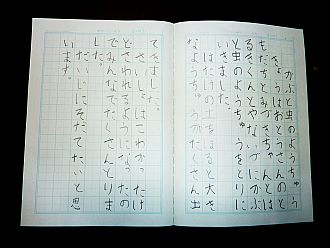 かぶと虫のようちゅう
きょうはおとうさんのと
もだちとみずきちゃんとは
るきくんとやないにかぶ
と虫のようちゅうをとりに
はたけの土をほると大き
なようちゅうがたくさん出
てきました。
さいしょはこわかったけ
どさわれるようになったの
でみんなでたくさんとりま
した。
だいじにそだてたいと思
います。